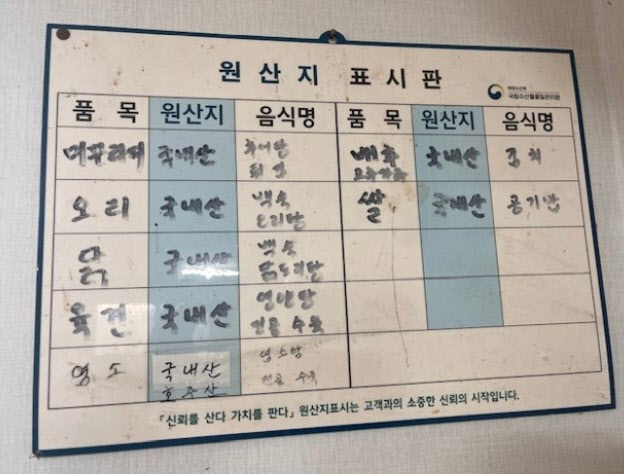 원산지 표시판
해양수산부
국립수산물품질관리원
품 목 원산지 음식명 품 목 원산지 음식명
미꾸라지 국내산 추어탕 배추 국내산 김치
고추가루
오리 국내산 백숙 쌀 국내산 공기밥
오리탕
닭 국내산 백숙
육견 국내산 영양탕
전골 수육
염소 국내산 염소탕
호주산 전골 수육
『신뢰를 산다 가치를 판다』 원산지표시는 고객과의 소중한 신뢰의 시작입니다.